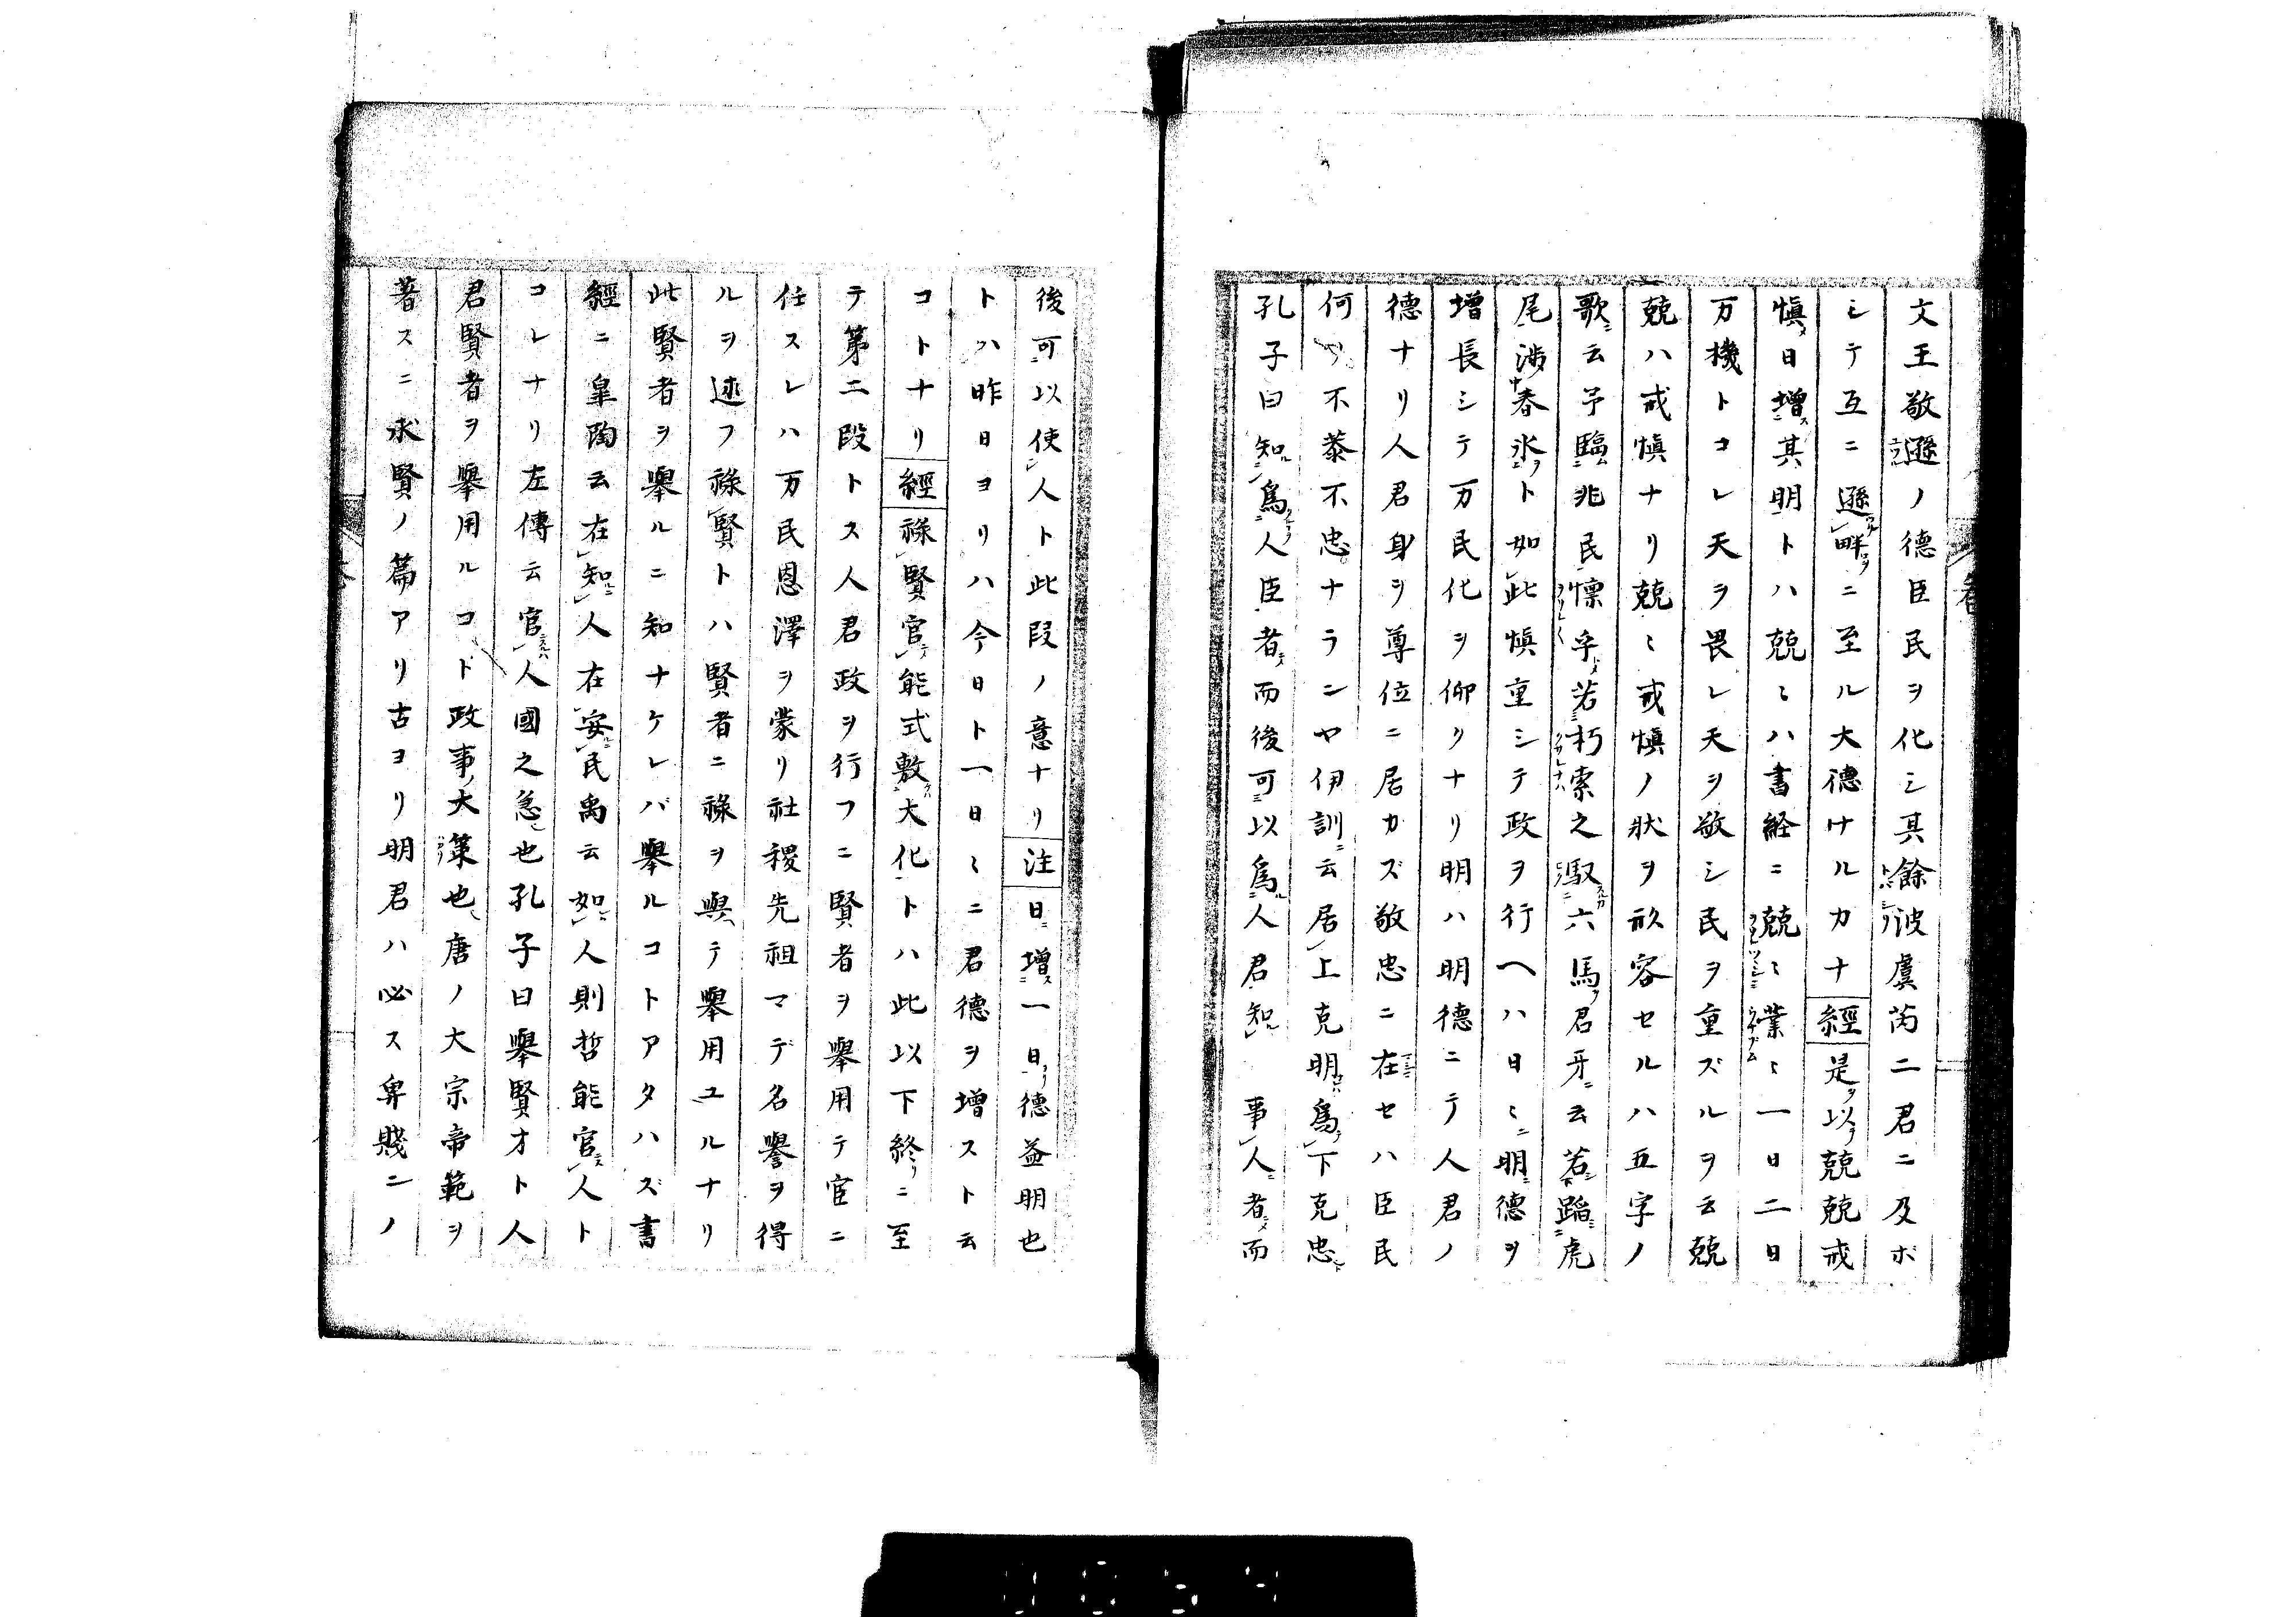 文王敬遜ノ德臣民ヲ化シ其餘波虞芮二君ニ及ボ
シテ互ニ遜畔ニ至ル大德ケナルカナ經是以兢兢戒
愼日增其明トハ兢〻ハ書経ニ兢〻業〻一日二日
万機トコレ天ヲ畏レ天ヲ敬シ民ヲ重ズルヲ云兢
兢ハ戒愼ナリ兢〻戒愼ノ狀ヲ形容セルハ五字ノ
歌云予臨兆民懍乎若朽索之馭六馬君牙云若蹈虎
尾涉春氷ト如此愼重シテ政ヲ行ヘハ日〻明德ヲ
增長シテ万民化ヲ仰クナリ明ハ明德ニテ人君ノ
德ナリ人君身ヲ尊位ニ居カズ敬忠ニ在セハ臣民
何不恭不忠ナランヤ伊訓云居上克明爲下克忠
孔子曰知爲人臣者而後可以爲人君知事人者而
後可以使人ト此段ノ意ナリ注日增一日德益明也
トハ昨日ヨリハ今日ト一日〻ニ君德ヲ增スト云
コトナリ經祿賢官能式敷大化トハ此以下終ニ至
テ第二段トス人君政ヲ行フニ賢者ヲ擧用テ官ニ
任スレハ万民恩澤ヲ蒙リ社稷先祖マデ名譽ヲ得
ルヲ述フ祿賢トハ賢者ニ祿ヲ與テ擧用ユルナリ
此賢者ヲ擧ルニ知ナケレバ擧ルコトアタハズ書
經ニ皐陶云在知人在安民禹云如人則哲能官人ト
コレナリ左傳云官人國之急也孔子曰擧賢才ト人
君賢者ヲ擧用ルコト政事大策也唐ノ大宗帝範ヲ
著スニ求賢ノ篇アリ古ヨリ明君ハ必ス卑賤ニノ